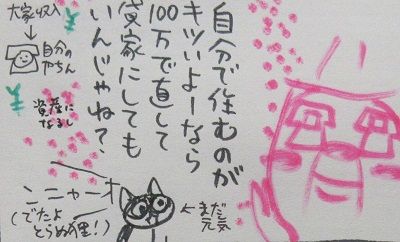 自分で住むのが
キツいよーなら
100万で直して
貸家にしても
いんじゃね？
大家収入
↓
自分の
やちん
資産に
なるし
ンニャーオ
(でたよ
とらぬ狸！)
←まだ
元気